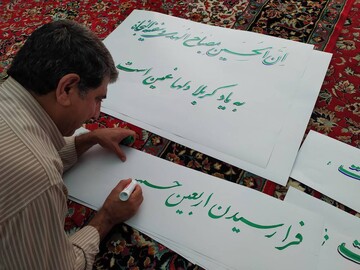 ان الحسین مصباح الهدی و سفینة النجاة
به یاد کربلا دلها غمین است
فرا رسیدن اربعین حسی